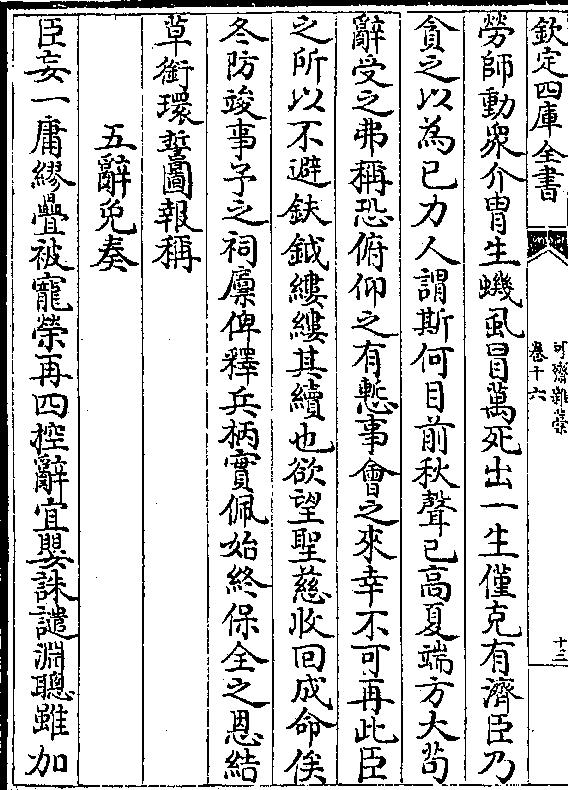 欽定四庫全書
可齋雜藁
卷十六
十三
勞師動衆介冑生蟣虱冒萬死出一生僅克有濟臣乃
貪之以為已力人謂斯何目前秋聲已高夏端方大茍
辭受之弗稱恐俯仰之有慙事會之來幸不可再此臣
之所以不避鈇鉞縷縷其續也欲望聖慈收回成命俟
冬防竣事予之祠廩俾釋兵柄實佩始終保全之恩結
草銜環誓圖報稱
五辭免奏
臣妄一庸繆疊被寵榮再四控辭宜嬰誅譴淵聰雖加